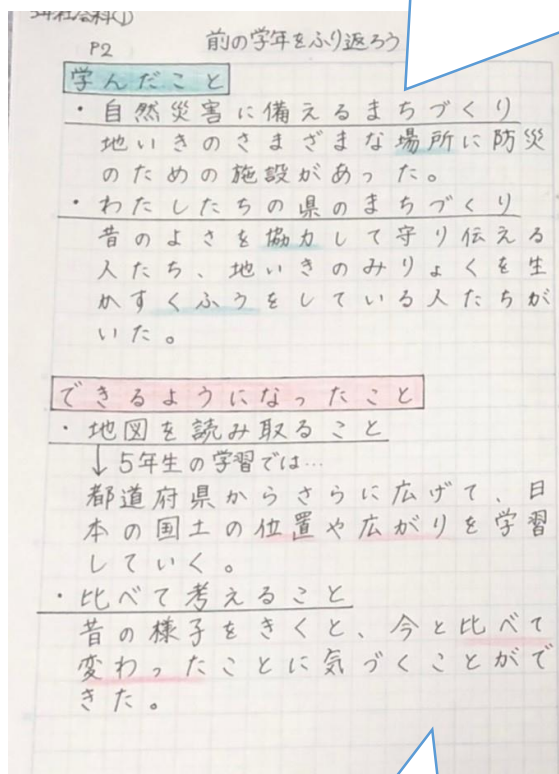 P2
前の学年をふり返ろう
学んだこと
・自然災害に備えるまちづくり
地いきのさまざまな場所に防災
のための施設があった。
・わたしたちの県のまちづくり
昔のよさを協力して守り伝える
人たち、地いきのみりょくを生
かすくふうをしている人たちが
いた。
できるようになったこと
・地図を読み取ること
↓5年生の学習では…
都道府県からさらに広げて、日
本の国土の位置や広がりを学習
していく。
・比べて考えること
昔の様子をきくと、今と比べて
変わったことに気づくことがで
きた。